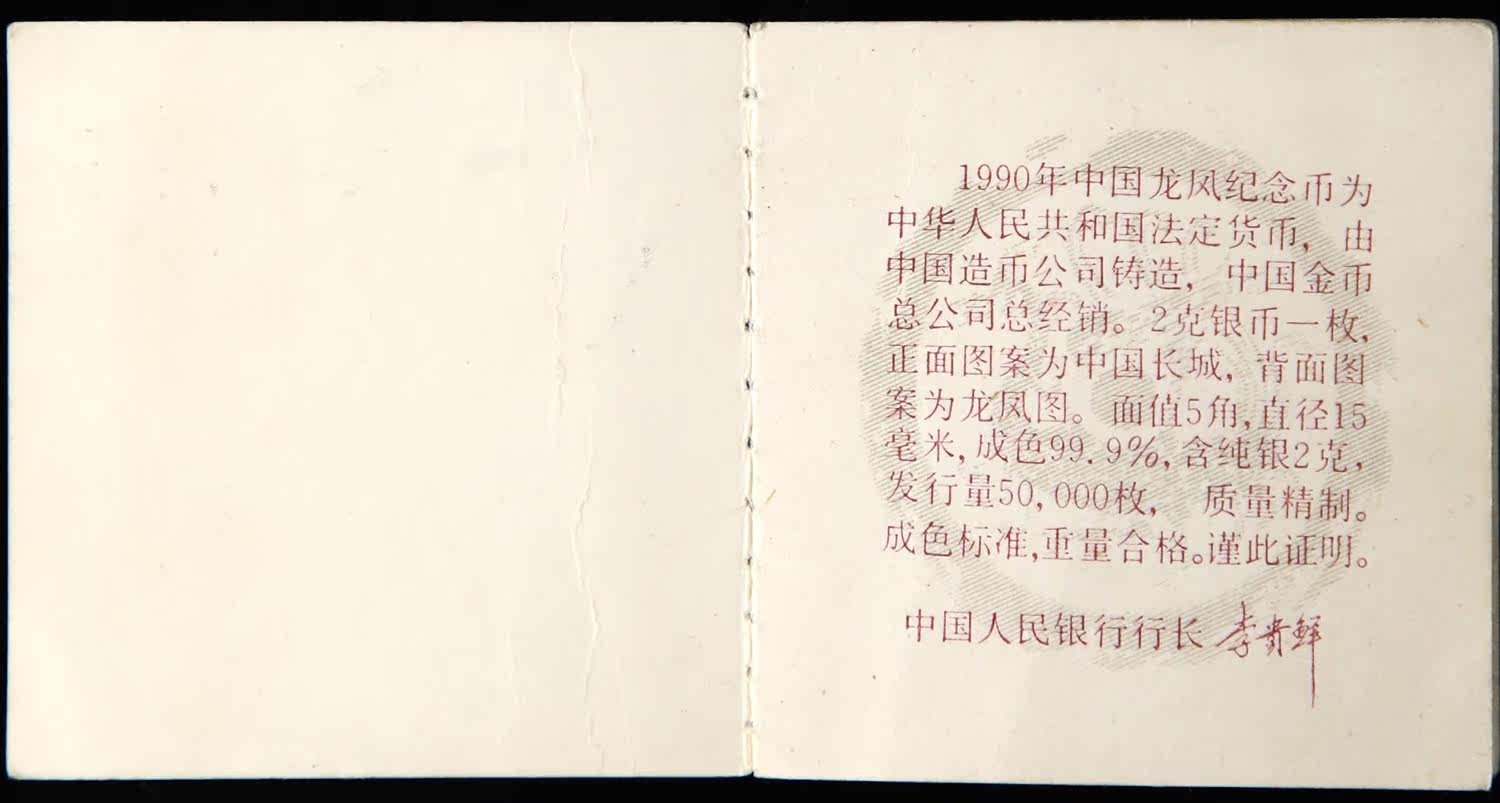 1990年中国龙凤纪念币为
中华人民共和国法定货币，由
中国造币公司铸造，中国金币
总公司总经销。2克银币一枚，
正面图案为中国长城，背面图
案为龙凤图。面值5角，直径15
毫米，成色99.9%，含纯银2克，
发行量50,000枚，质量精制。
成色标准，重量合格。谨此证明。
中国人民银行行长 李贵鲜